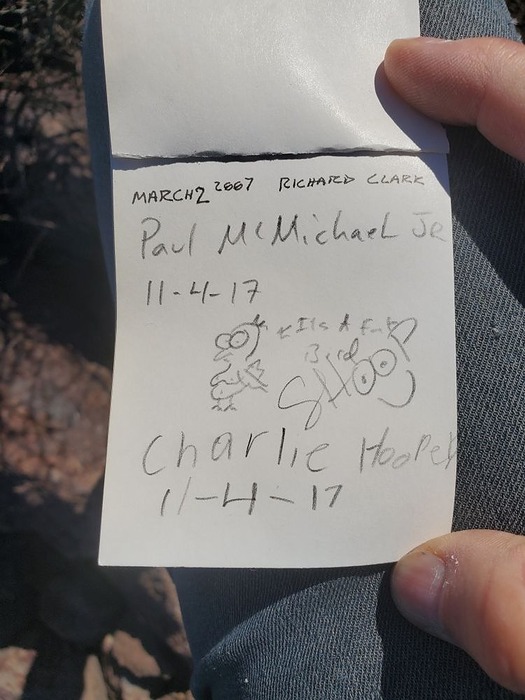 MARCH 2 2007 RICHARD CLARK
Paul McMichael JR
11-4-17
Its A
Bird
SHOOP
Charlie Hooper
11-4-17